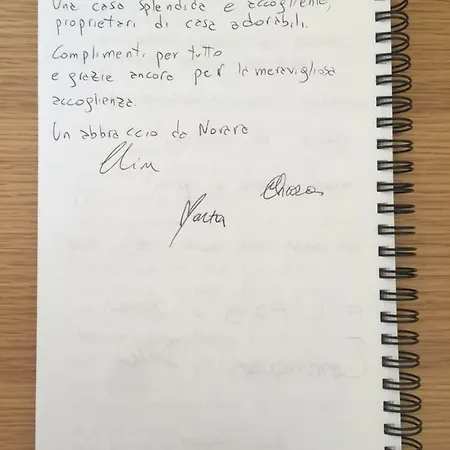 Una casa splendida e accogliente,
proprietari di casa adorabili.
Complimenti per tutto
e grazie ancora per la meravigliosa
accoglienza.
Un abbraccio da Novara
Marta